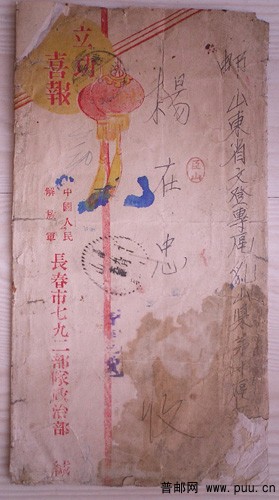 山東省文登專區
楊在忠 收
立功
喜報
中國人民
解放軍
長春市七九二部隊政治部 緘
普邮网 www.puu.cn